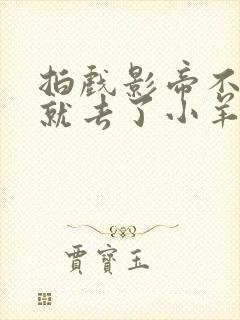 拍戏影帝不
就去了小羊
贾寶玉